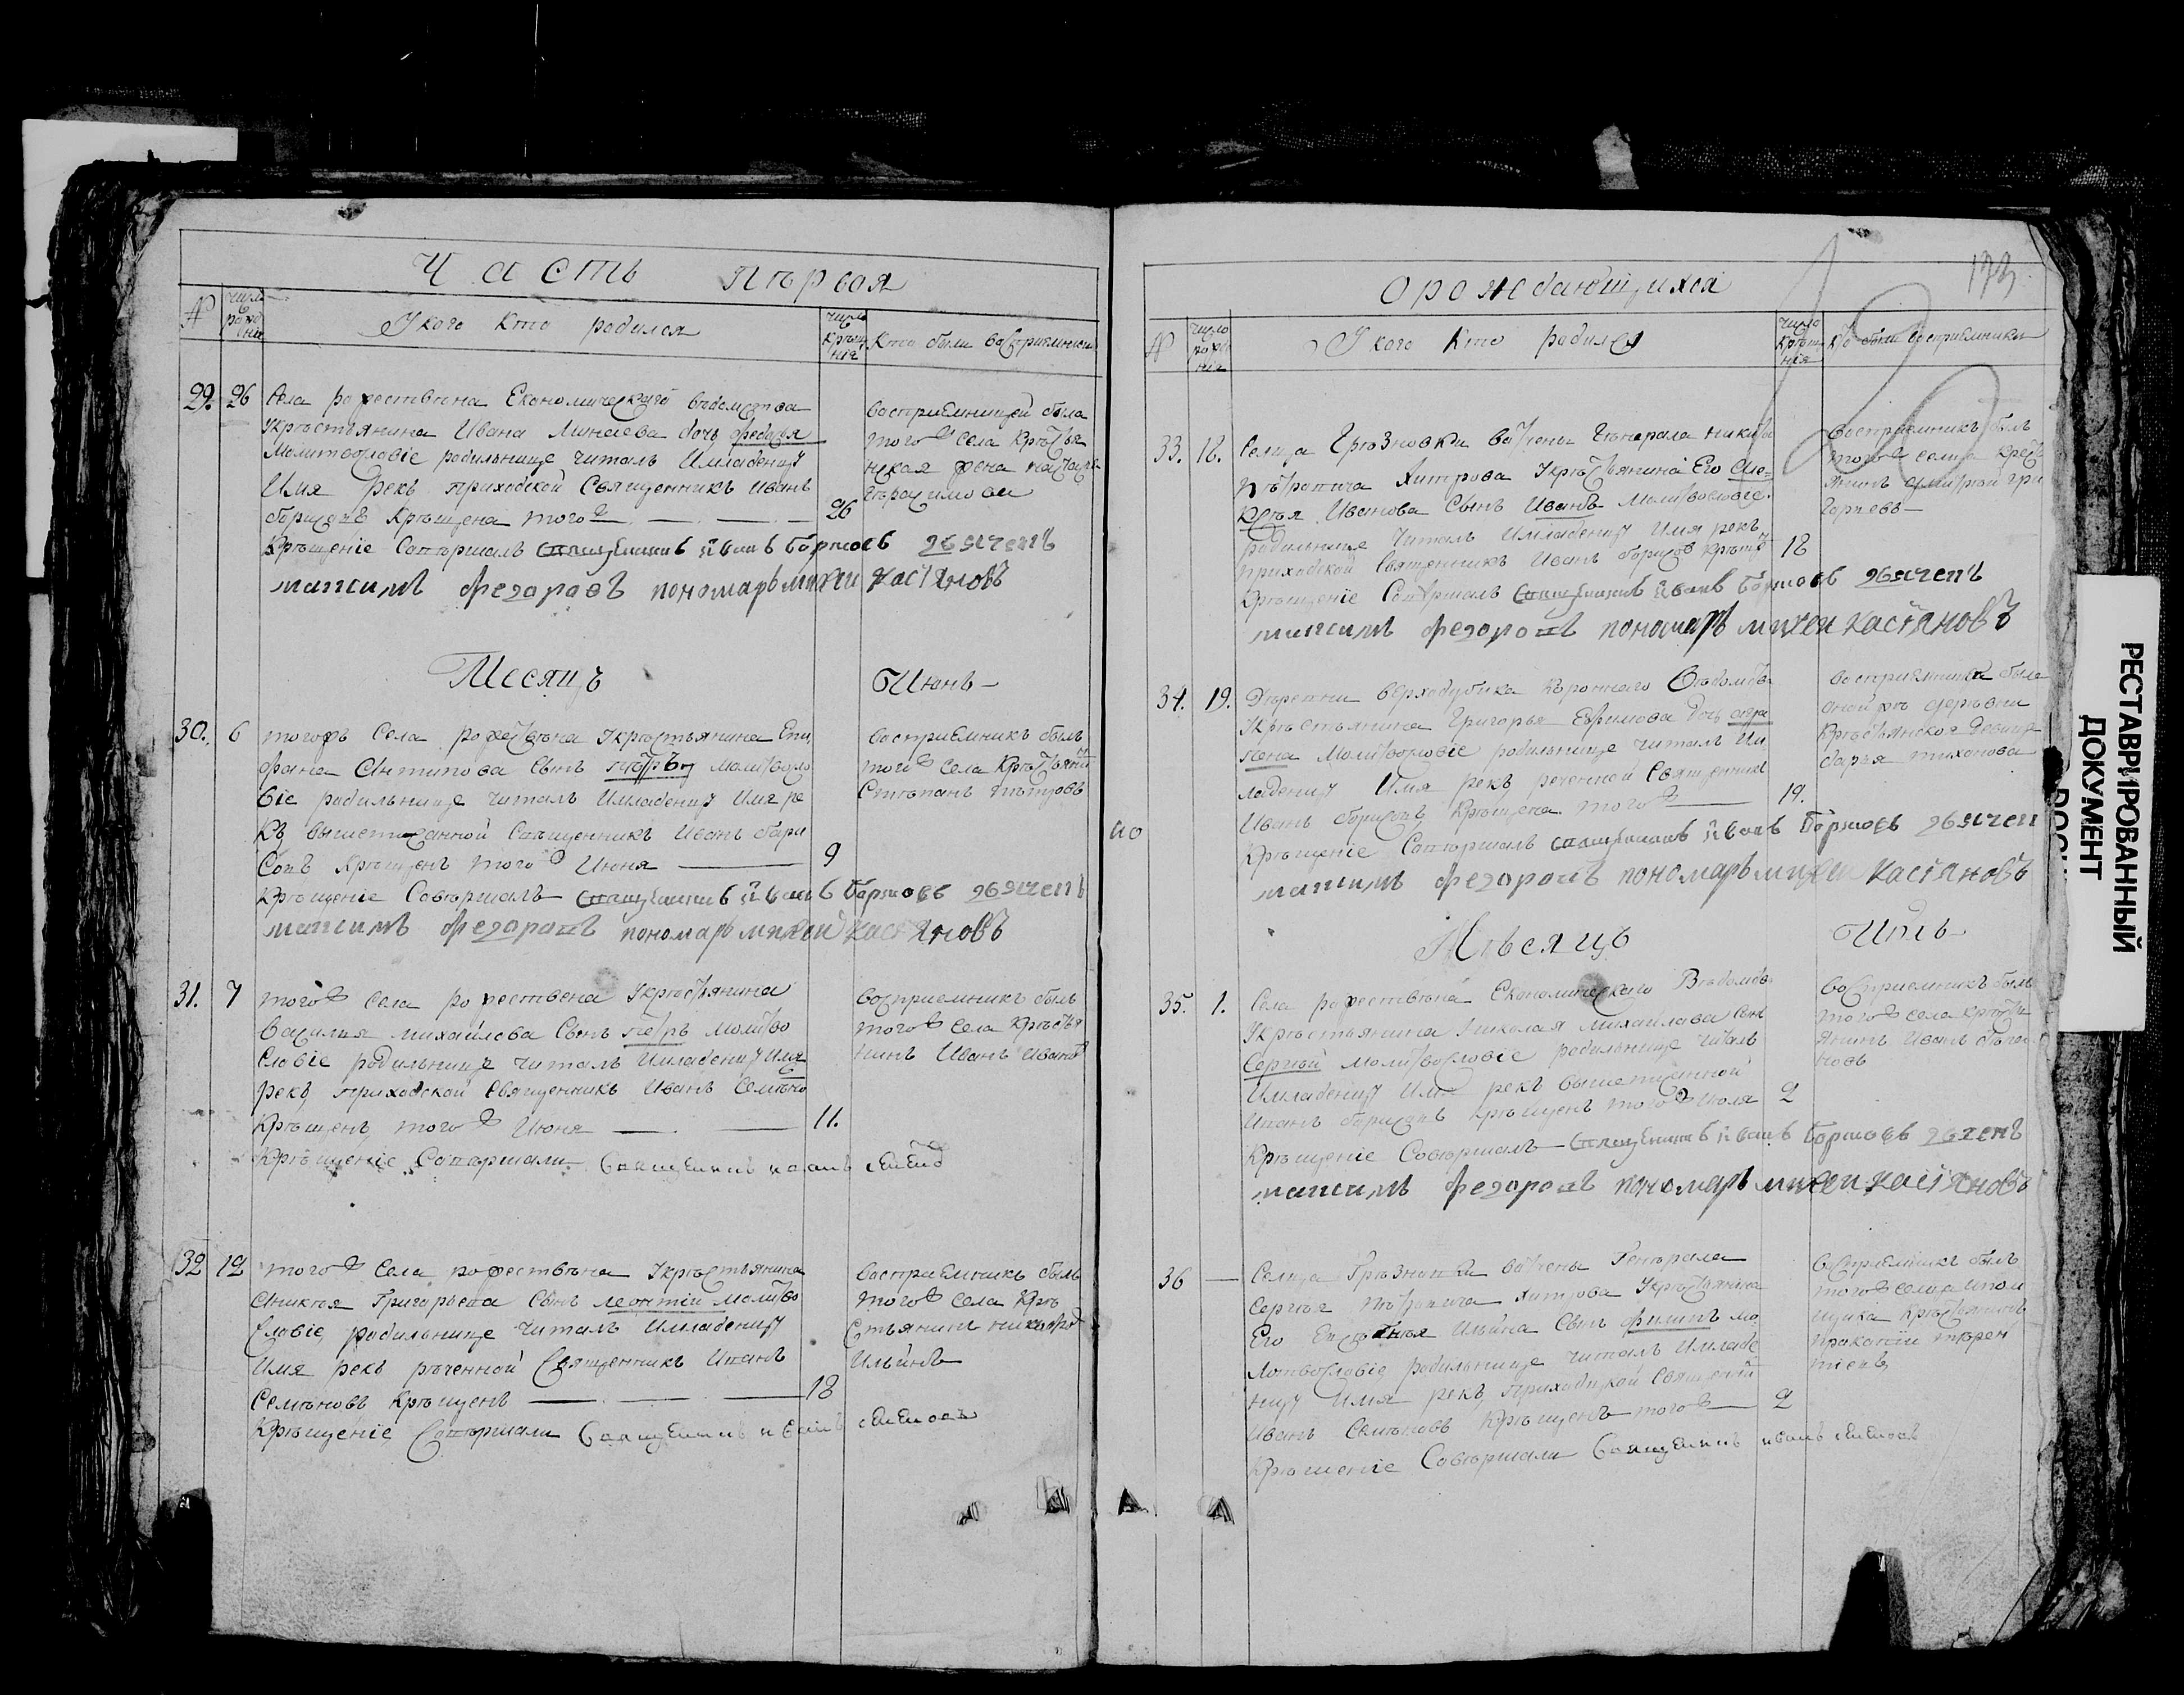 Часть первая
№
число рожде ния
У кого кто родился
число крещ ния
Кто были восприемники
29. 26 Села рожествена Економического ведомства
Укрестьянина Ивана Минаева дочь федосья
Молитвословіе родильнице читалъ Имладенцу
Имя рекъ приходской Священникъ иванъ
борисовъ Крещена того ж 26
восприемницей была
того ж села Кресть
нская жена настасья
Герасимова
Крещеніе Совершалъ священникъ иванъ борисовъ дьяченъ
максимъ федоровъ пономарь михеи касіяновъ
Месяцъ Июнь
30. 6 тогожъ Села рожествена Укрестьянина Епи
фана Антипова Сынъ петръ молитвосло
віе родильнице читалъ Имладенцу Имя ре
къ вышеписанной Священникъ Иванъ бори
совъ Крещенъ того ж Июня 9
восприемникъ былъ
того ж села Крестьяни
Степанъ
Крещеніе Совершалъ священникъ иванъ борисовъ дьяченъ
максимъ федоровъ пономарь михеи касіяновъ
31. 7 того ж села рожествена Укрестьянина
Василья михайлова Сынъ петръ молитво
словіе родильнице читалъ Имладенцу имя
рекъ приходской Священникъ Иванъ Семено
Крещенъ того ж Июня 11.
восприемникъ былъ
того ж села Крестья
нинъ Иванъ Ивановъ
Крещеніе Совершали Священникъ иванъ семеновъ
32 12 того ж Села рожествена Укрестьянина
Григорьева Сынъ леонтій молитво
словіе родильнице читалъ Имладенцу
Имя рекъ реченной Священникъ Иванъ
Семеновъ Крещенъ 18
восприемникъ былъ
того ж села Кре
стьянинъ никифоръ
Ильинъ
Крещеніе Совершали Священникъ иванъ семеновъ
173
орождающихся
№
число рожде ния
У кого кто родился
число крещ ния
Кто были восприемники
33. 18. Селца Грезновки вотчены Генерала никиты
петровича Хитрова Укрестьянина Его Але
ксея Иванова Сынъ Иванъ молитвословіе
родильнице читалъ Имладенцу имя рекъ
приходской Священникъ Иванъ борисовъ Крещенъ 18
восприемникъ былъ
того ж селца кресть
янинъ дмитрей гри
горьевъ
Крещеніе Совершалъ священникъ иванъ борисовъ дьяченъ
максимъ федоровъ пономарь михеи касіяновъ
34. 19. Деревни верходубика Коронного Ведомства
Укрестьянина Григорья Ефимова дочь агра
пена Молитвословіе родильнице читалъ Им
ладенцу Имя рекъ реченной Священникъ
Иванъ борисовъ Крещена того ж 19.
восприемница была
оной жъ деревни
Крестьянская девица
дарья тихонова
Крещеніе Совершалъ священникъ иванъ борисовъ дьячен
максимъ федоровъ пономарь михеи касіяновъ
Месяцъ Июль
35. 1. Села рожествена Економического Ведомств
Укрестьянина Николая михайлова Сынъ
Сергей молитвословіе родильнице читалъ
Имладенцу Имя рекъ вышеписанной
Иванъ борисовъ Крещенъ того ж июля 2
восприемникъ былъ
того ж села кресть
янинъ Иванъ степа
новъ
Крещеніе Совершалъ священникъ иванъ борисовъ дьяченъ
максимъ федоровъ пономарь михеи касіяновъ
36 — Селца Грезновки вотчены Генерала
Сергея петровича хитрова Укрестьянина
Его Ильина Сынъ филипъ мо
литвословіе родильнице читалъ Имладе
нцу Имя рекъ приходцкой Священни
Иванъ Семеновъ Крещенъ того ж 2
восприемникъ былъ
того ж селца
крестьянинъ
прокофій терен
тіевъ
Крещеніе Совершали Священникъ иванъ семеновъ
РЕСТАВРИРОВАННЫЙ
ДОКУМЕНТ